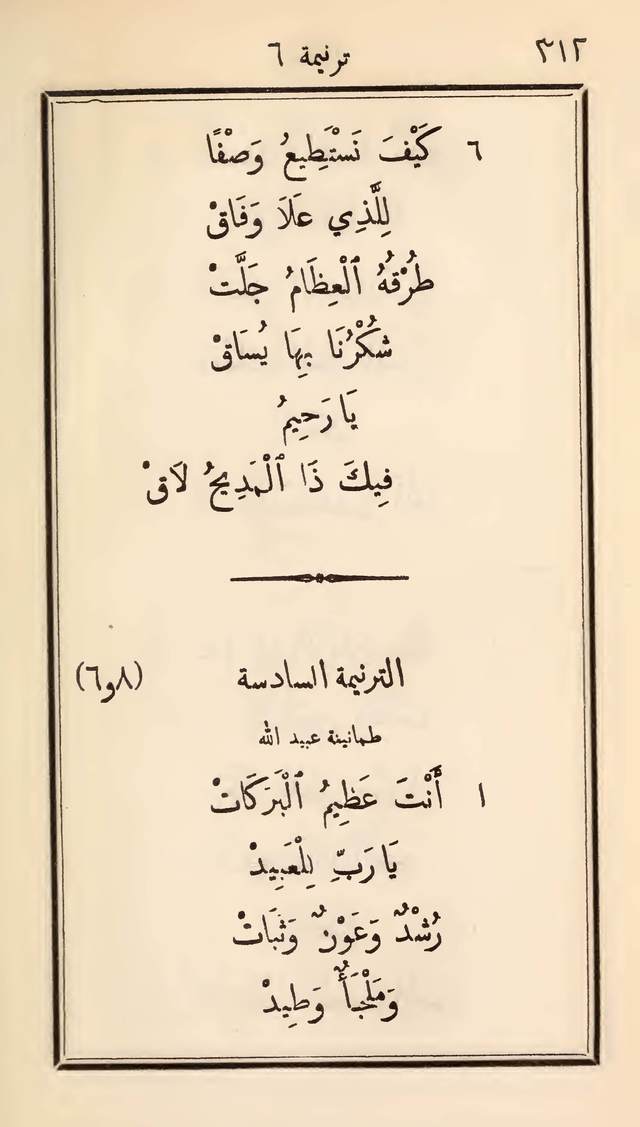 ٣١٢
ترنيمة ٦
٦ كَيْفَ نَسْتَطِيعُ وَصْفًا
لِلَّذِي عَلَا وَفَاقْ
طُرْقُهُ ٱلْعِظَامُ جَلَّتْ
شُكْرُنَا بِهَا يُسَاقْ
يَا رَحِيمُ
فِيكَ ذَا ٱلْمَدِيحُ لَاقْ
الترنيمة السادسة (٨و٦)
طمانينة عبيد الله
١ أَنْتَ عَظِيمُ ٱلْبَرَكَاتْ
يَا رَبِّ لِلْعَبِيدْ
رُشْدٌ وَعَوْنٌ وَثَبَاتْ
وَمَلْجَأٌ وَطِيدْ